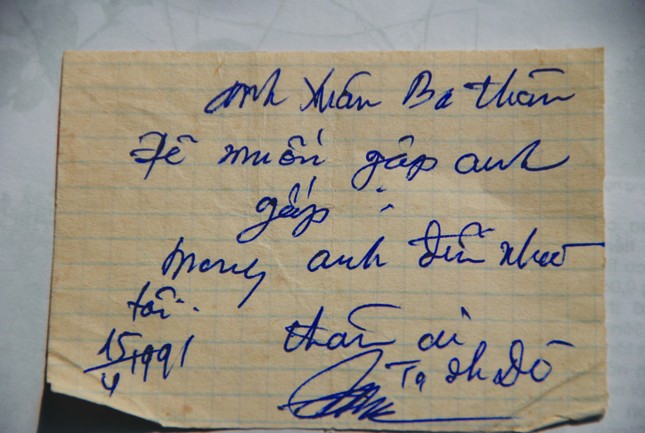 anh Xuân Ba thân
Tê muốn gặp anh
gấp :
mong anh đến nhà
tôi..
15/4 1991
thân ái
Tạ